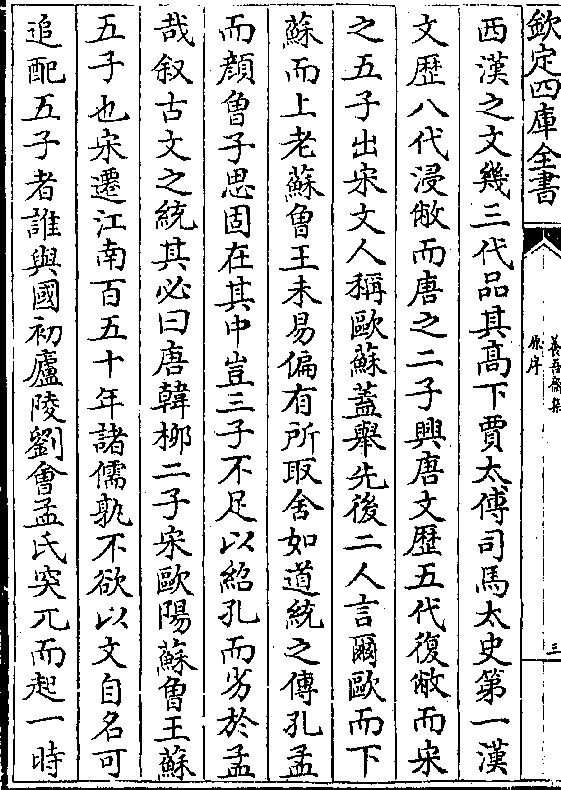 欽定四庫全書
養吾齋集
原序
三
西漢之文幾三代品其髙下賈太傅司馬太史第一漢
文歴八代浸敝而唐之二子興唐文歴五代復敝而宋
之五子出宋文人稱歐蘇蓋舉先後二人言爾歐而下
蘇而上老蘇曾王未易偏有所取舍如道統之傳孔孟
而顔曾子思固在其中豈三子不足以紹孔而劣於孟
哉叙古文之統其必曰唐韓栁二子宋歐陽蘇曾王蘇
五子也宋遷江南百五十年諸儒孰不欲以文自名可
追配五子者誰與國初廬陵劉會孟氏突兀而起一時